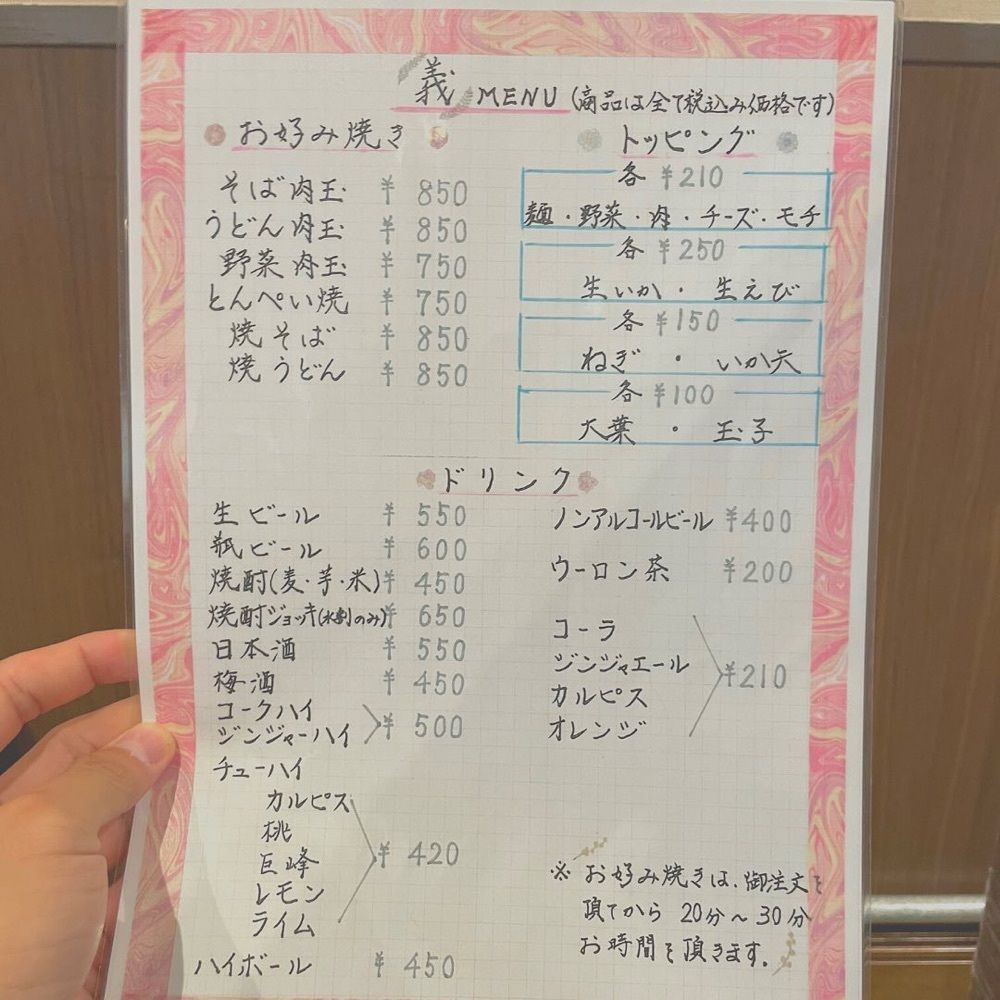 義 MENU (商品は全て税込み価格です)
お好み焼き
そば肉玉 ¥ 850
うどん肉玉 ¥ 850
野菜肉玉 ¥ 750
とんぺい焼 ¥ 750
焼そば ¥ 850
焼うどん ¥ 850
トッピング
各 ¥210
麺・野菜・肉・チーズ・モチ
各 ¥250
生いか・生えび
各 ¥150
ねぎ・いか天
各 ¥100
大葉・玉子
ドリンク
生ビール ¥ 550
瓶ビール ¥ 600
焼酎(麦・芋・米) ¥ 450
焼酎ジョッキ(水割のみ) ¥ 650
日本酒 ¥ 550
梅酒 ¥ 450
コークハイ
ジンジャーハイ ¥ 500
チューハイ
カルピス
桃
巨峰 ¥ 420
レモン
ライム
ハイボール ¥ 450
ノンアルコールビール ¥400
ウーロン茶 ¥200
コーラ
ジンジャエール ¥210
カルピス
オレンジ
※ お好み焼きは、御注文を
頂てから 20分〜30分
お時間を頂きます。